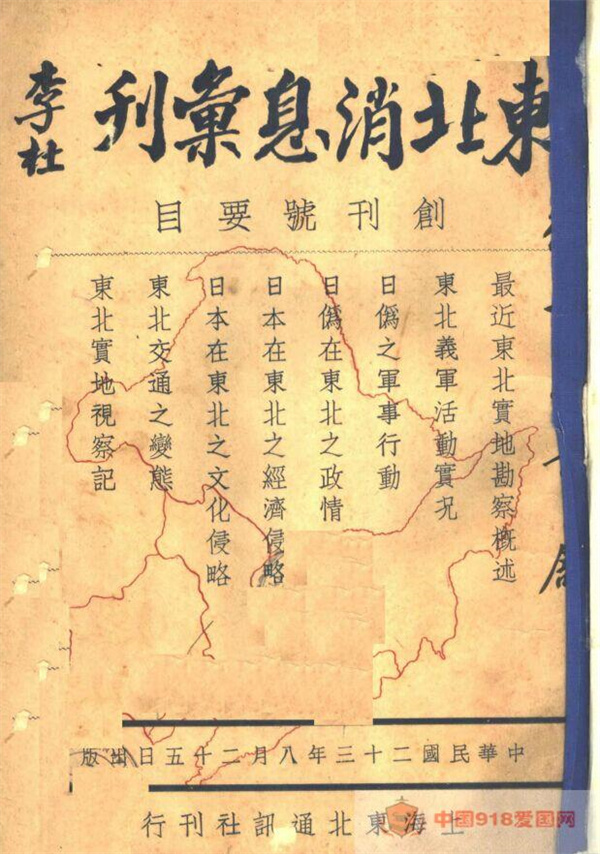 東北消息彙刊
李杜
創刊號要目
最近東北實地勘察概述
東北義軍活動實况
日僞之軍事行動
日僞在東北之政情
日本在東北之經濟侵略
日本在東北之文化侵略
東北交通之變態
東北實地視察記
中華民國二十三年八月二十五日出版
上海東北通訊社刊行
中国918爱国网